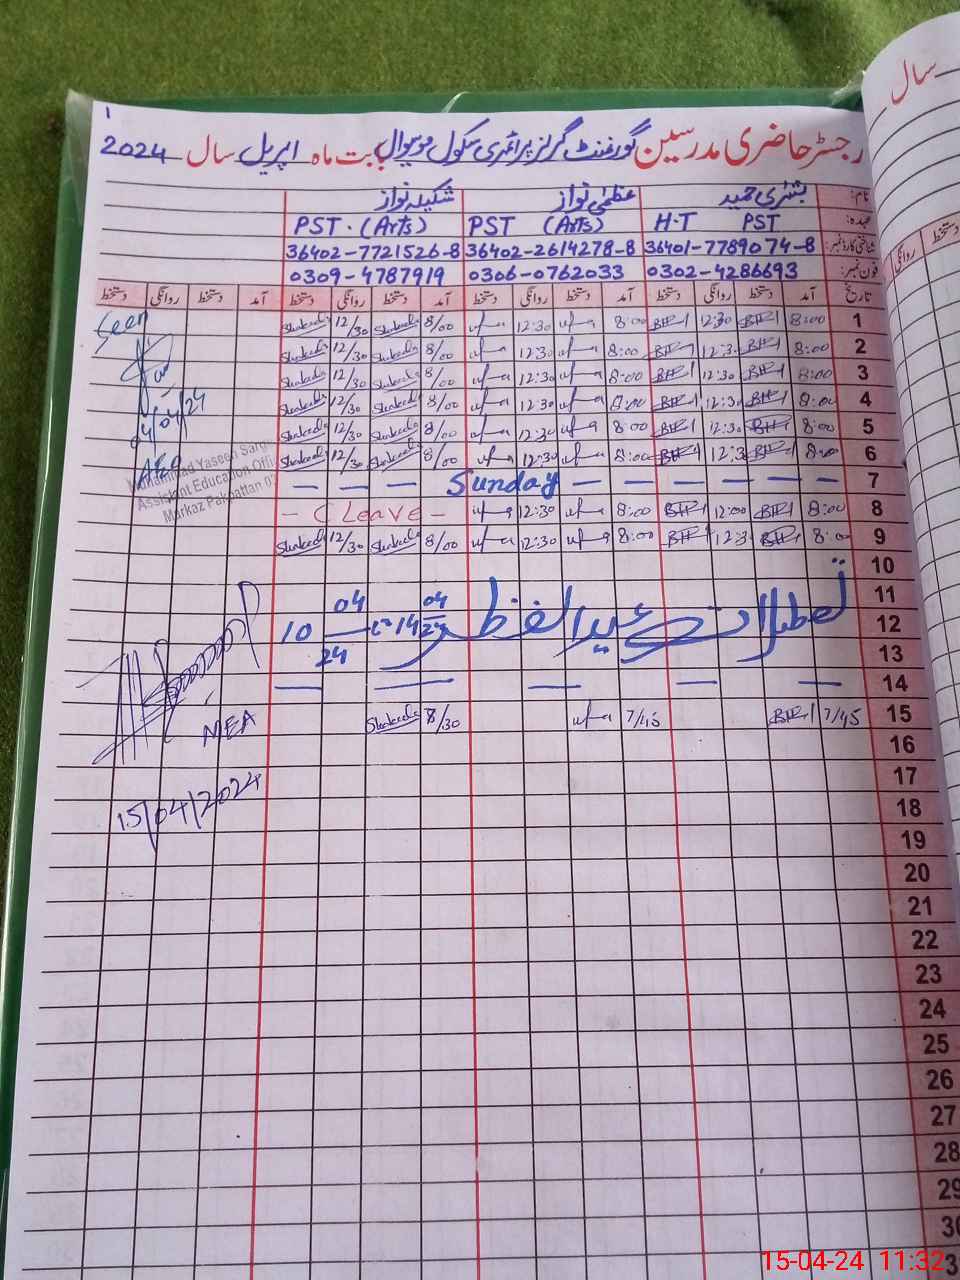 1
رجسٹر حاضری مدرسین گورنمنٹ گرلز پرائمری سکول موسیوال بابت ماہ اپریل سال 2024
سال
نام: بشری حمید عظمی نواز شکیلہ نواز
عہدہ: PST H.T PST (Arts) PST. (Arts)
شناختی کارڈ نمبر: 36401-7789074-8 36402-2614278-8 36402-7721526-8
فون نمبر: 0302-4286693 0306-0762033 0309-4787919
تاریخ آمد دستخط روانگی دستخط آمد دستخط روانگی دستخط آمد دستخط روانگی دستخط آمد دستخط روانگی دستخط
روانگی دستخط
1 8:00 12:30 8:00 12:30 8/00 Shakeela 12/30 Shakeela
Seen
2 8:00 12:3 8:00 12:30 8/00 Shakeela 12/30 Shakeela
3 8:00 12:30 8:00 12:30 8/00 Shakeela 12/30 Shakeela
4 8:00 12:30 8:00 12:30 8/00 Shakeela 12/30 Shakeela
04/04/24
5 8:00 12:30 8:00 12:30 8/00 Shakeela 12/30 Shakeela
6 8:00 12:3 8:00 12:30 8/00 Shakeela 12/30 Shakeela
AEO
Muhammad Yaseen
Assistant Education Offi
Markaz Pakpattan
7 — — — Sunday — — — — — —
8 8:00 12:00 8:00 12:30 - C Leave -
9 8:00 12:3 8:00 12:30 8/00 Shakeela 12/30 Shakeela
10
11
12 تعطیلات عید الفطر 14 04/24 تا 10 04/24
13
14 — — — — —
15 7/45 7/45 8/30 Shakeela
MEA
15/04/2024
16
17
18
19
20
21
22
23
24
25
26
27
28
29
30
3
15-04-24 11:32